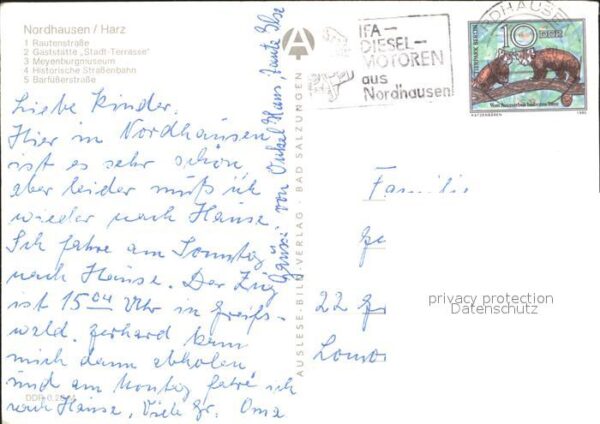 Nordhausen / Harz
1 Rautenstraße
2 Gaststätte „Stadt-Terrasse“
3 Meyenburgmuseum
4 Historische Straßenbahn
5 Barfüßerstraße
Liebe Kinder.
Hier in Nordhausen
ist es sehr schön
aber leider muß ich
wieder nach Hause
Ich fahre am Sonntag
nach Hause. Der Zug
ist 15 04 Uhr in Greifs-
wald. Gerhard kann
mich dann abholen
und am Montag fahre ich
nach Hause, Viele Gr. Oma
DDR 0,20 M
Grüße von Onkel Hans, Tante Else
AUSLESE-BILD-VERLAG · BAD SALZUNGEN
A
IFA-
DIESEL-
MOTOREN
aus
Nordhausen
NORDHAUSEN
10 DDR
TIERPARK BERLIN
KATZENBÄREN
1980
Familie
22
privacy protection
Datenschutz